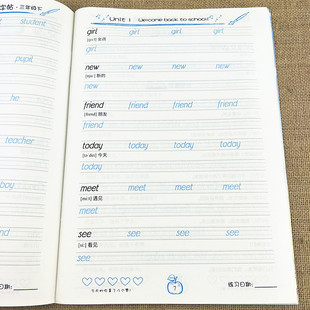 字帖·三年级下
student
he
pupil
teacher
she
boy
练习日期:
Unit 1 Welcome back to school!
girl girl girl girl
女孩
girl
new new new new
[njuː] 新的
new
friend friend friend friend
[frend] 朋友
friend
today today today today
[təˈdeɪ] 今天
today
meet meet meet meet
[miːt] 遇见
meet
see see see see
[siː] 看见
see
7
练习日期: